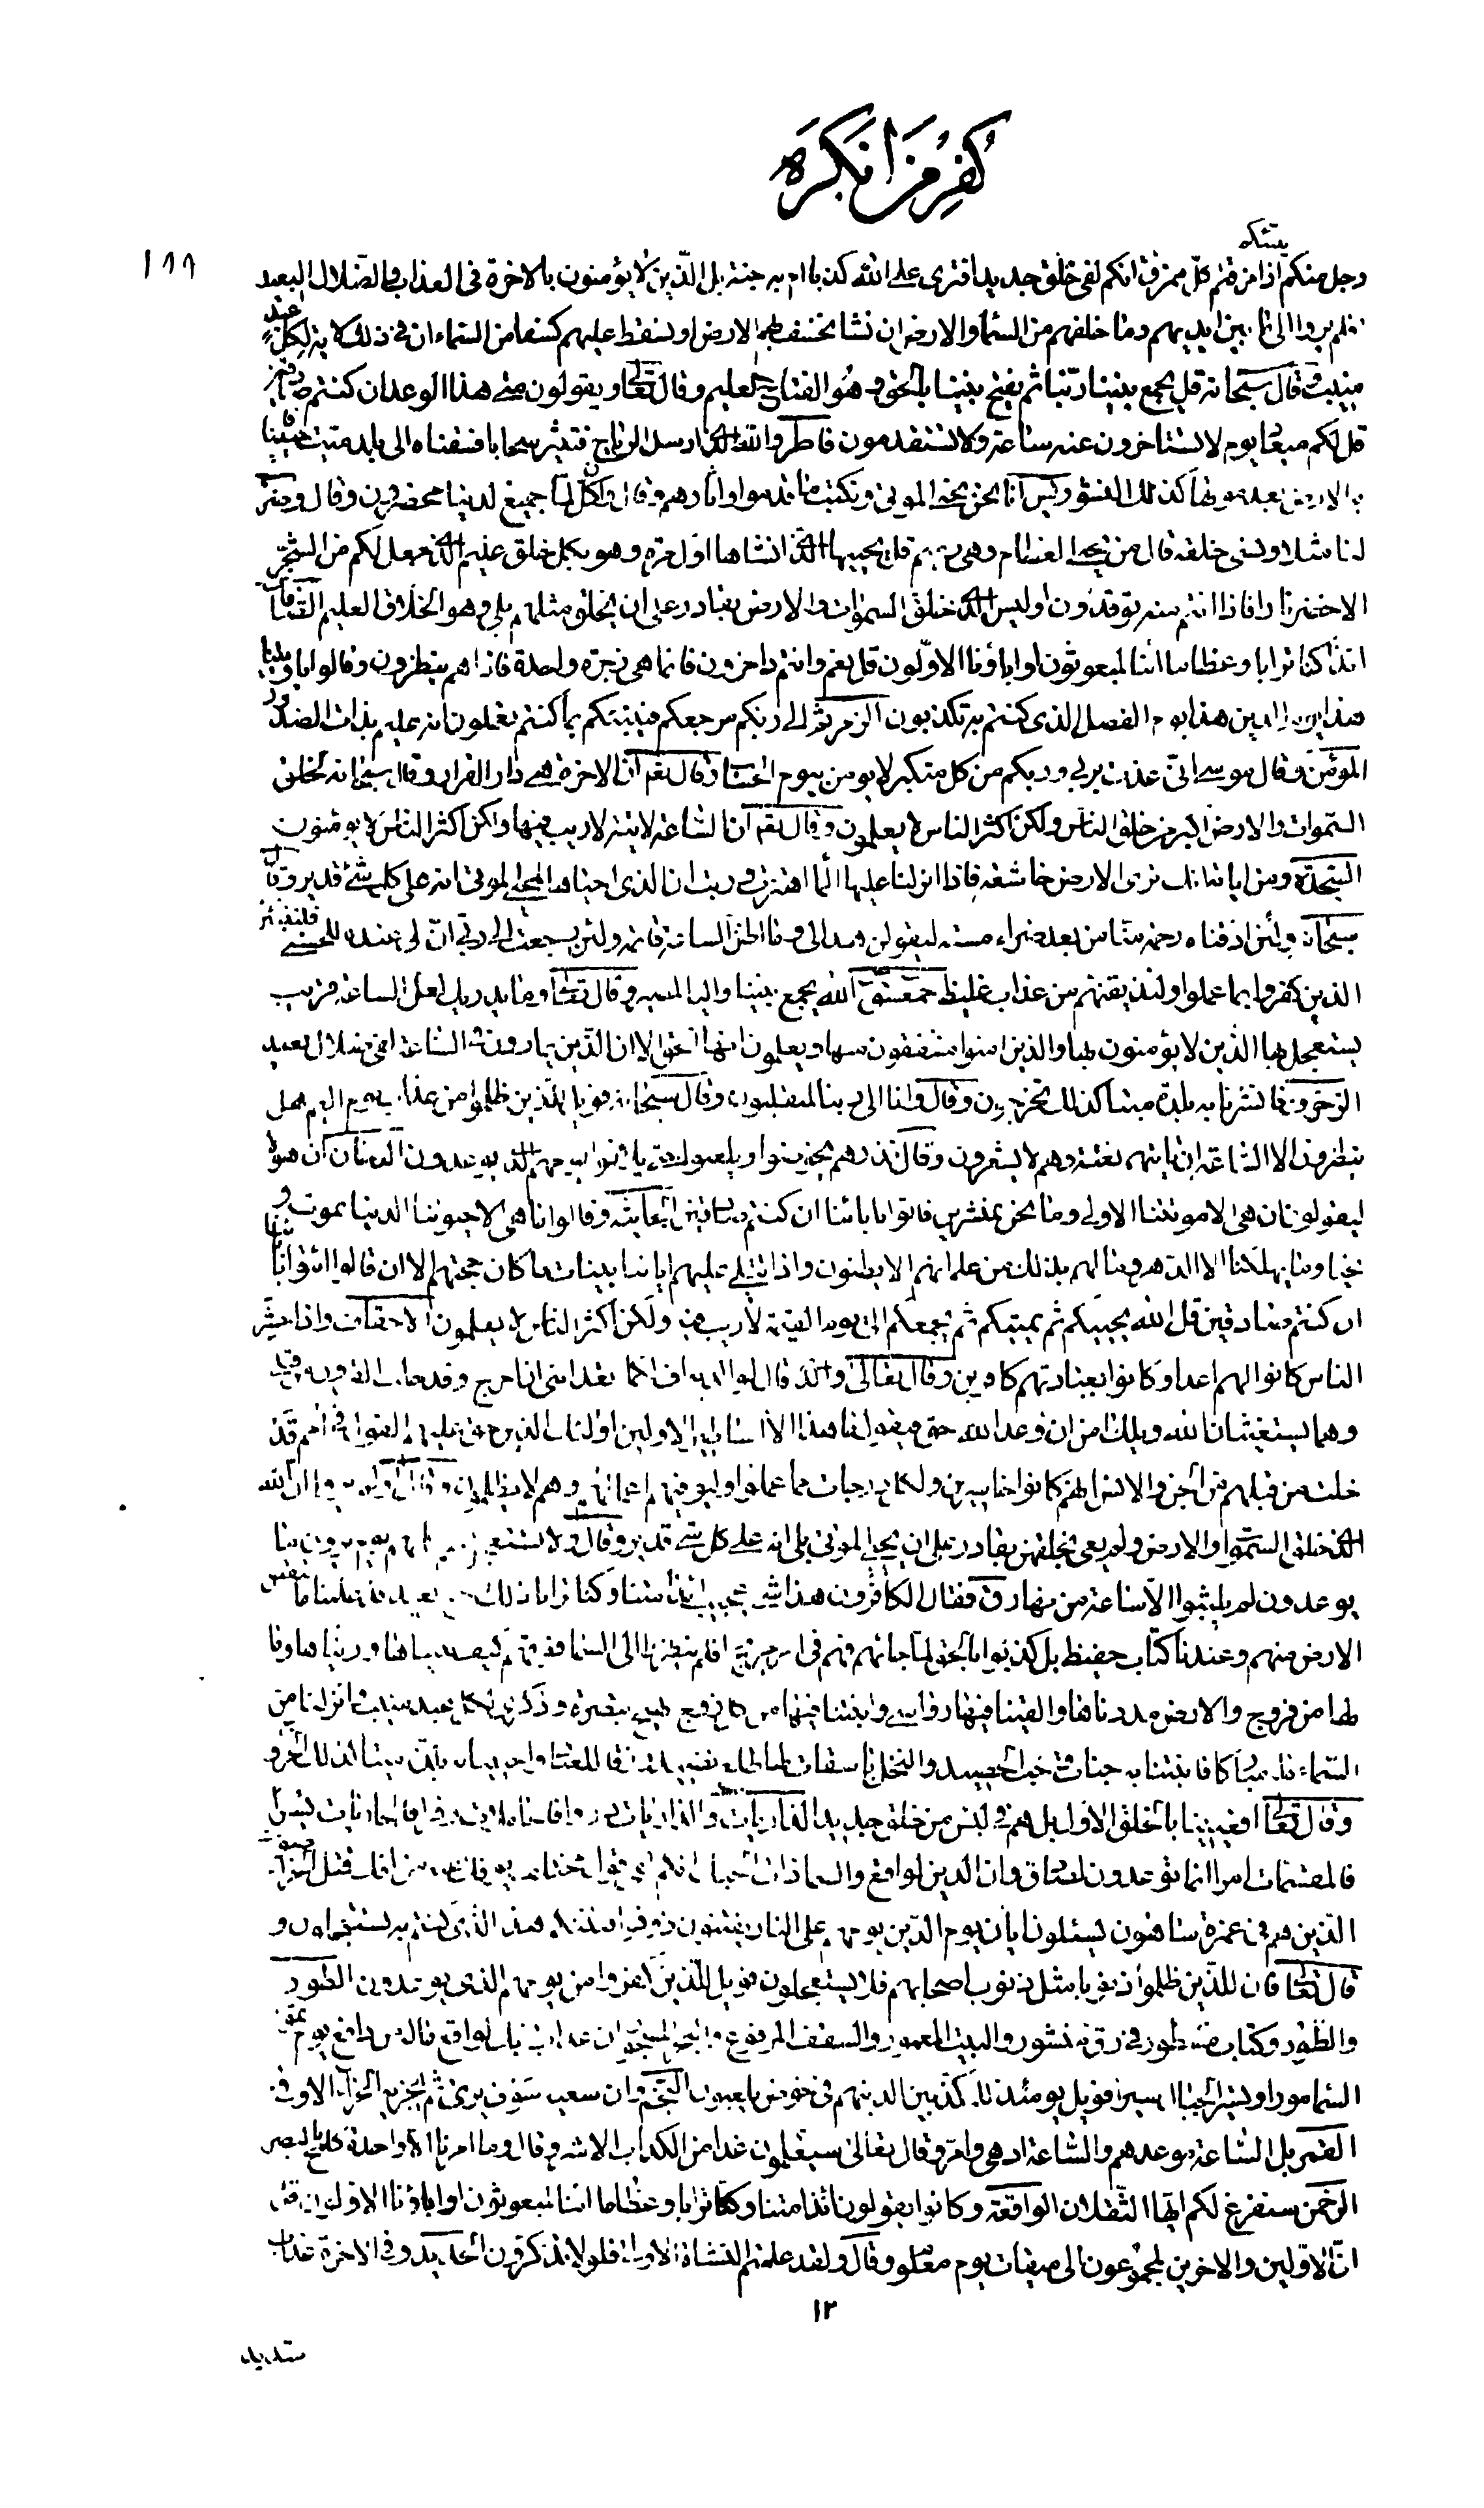 كفر من انكره
١٩٩
ينبئكم
رجل منكم اذا مزقتم كل ممزق انكم لفى خلق جديد افترى على الله كذبا ام به جنة بل الذين لا يؤمنون بالاخرة فى العذاب والضلال البعيد
افلم يروا الى ما بين ايديهم وما خلفهم من السماء والارض ان نشا نخسف بهم الارض او نسقط عليهم كسفا من السماء ان فى ذلك لاية لكل عبد
منيب وقال سبحانه قل يجمع بيننا ربنا ثم يفتح بيننا بالحق وهو الفتاح العليم وقال تعالى ويقولون متى هذا الوعد ان كنتم صادقين
قل لكم ميعاد يوم لا تستاخرون عنه ساعة ولا تستقدمون فاطر والله الذى ارسل الرياح فتثير سحابا فسقناه الى بلد ميت فاحيينا
به الارض بعد موتها كذلك النشور يس انا نحن نحيى الموتى ونكتب ما قدموا واثارهم وقال وان كل لما جميع لدينا محضرون وقال وضرب
لنا مثلا ونسى خلقه قال من يحيى العظام وهى رميم قل يحييها الذى انشاها اول مرة وهو بكل خلق عليم الذى جعل لكم من الشجر
الاخضر نارا فاذا انتم منه توقدون اوليس الذى خلق السموات والارض بقادر على ان يخلق مثلهم بلى وهو الخلاق العليم الصافات
ائذا كنا ترابا وعظاما ائنا لمبعوثون اواباؤنا الاولون قل نعم وانتم داخرون فانما هى زجرة واحدة فاذا هم ينظرون وقالوا يا ويلنا
هذا يوم الدين هذا يوم الفصل الذى كنتم به تكذبون الزمر ثم الى ربكم مرجعكم فينبئكم بما كنتم تعملون انه عليم بذات الصدور
المؤمن وقال موسى انى عذت بربى وربكم من كل متكبر لا يؤمن بيوم الحساب وقال تعم ان الاخرة هى دار القرار وقال سبحانه لخلق
السموات والارض اكبر من خلق الناس ولكن اكثر الناس لا يعلمون وقال تعم ان الساعة لاتية لا ريب فيها ولكن اكثر الناس لا يؤمنون
السجدة ومن اياته انك ترى الارض خاشعة فاذا انزلنا عليها الماء اهتزت وربت ان الذى احياها لمحيى الموتى انه على كل شئ قدير وقال
سبحانه ولئن اذقناه رحمة منا من بعد ضراء مسته ليقولن هذا لى وما اظن الساعة قائمة ولئن رجعت الى ربى ان لى عنده للحسنى فلننبئن
الذين كفروا بما عملوا ولنذيقنهم من عذاب غليظ حمعسق الله يجمع بيننا واليه المصير وقال تعالى وما يدريك لعل الساعة قريب
يستعجل بها الذين لا يؤمنون بها والذين امنوا مشفقون منها ويعلمون انها الحق الا ان الذين يمارون فى الساعة لفى ضلال بعيد
الزخرف فانشرنا به بلدة ميتا كذلك تخرجون وقال وانا الى ربنا لمنقلبون وقال سبحانه فويل للذين ظلموا من عذاب يوم اليم هل
ينظرون الا الساعة ان تاتيهم بغتة وهم لا يشعرون وقال فذرهم يخوضوا ويلعبوا حتى يلاقوا يومهم الذى يوعدون الدخان ان هؤلاء
ليقولون ان هى الا موتتنا الاولى وما نحن بمنشرين فاتوا بابائنا ان كنتم صادقين الجاثية وقالوا ما هى الا حيوتنا الدنيا نموت و
نحيا وما يهلكنا الا الدهر وما لهم بذلك من علم ان هم الا يظنون واذا تتلى عليهم اياتنا بينات ما كان حجتهم الا ان قالوا ائتوا بابائنا
ان كنتم صادقين قل الله يحييكم ثم يميتكم ثم يجمعكم الى يوم القيمة لا ريب فيه ولكن اكثر الناس لا يعلمون الاحقاف واذا حشر
الناس كانوا لهم اعداء وكانوا بعبادتهم كافرين وقال تعالى والذى قال لوالديه اف لكما اتعداننى ان اخرج وقد خلت القرون من قبلى
وهما يستغيثان الله ويلك امن ان وعد الله حق فيقول ما هذا الا اساطير الاولين اولئك الذين حق عليهم القول فى امم قد
خلت من قبلهم من الجن والانس انهم كانوا خاسرين ولكل درجات مما عملوا وليوفيهم اعمالهم وهم لا يظلمون وقال اولم يروا ان الله
الذى خلق السموات والارض ولم يعى بخلقهن بقادر على ان يحيى الموتى بلى انه على كل شئ قدير وقال ولا تستعجل لهم كانهم يوم يرون ما
يوعدون لم يلبثوا الا ساعة من نهار ق فقال الكافرون هذا شئ عجيب ائذا متنا وكنا ترابا ذلك رجع بعيد قد علمنا ما تنقص
الارض منهم وعندنا كتاب حفيظ بل كذبوا بالحق لما جائهم فهم فى امر مريج افلم ينظروا الى السماء فوقهم كيف بنيناها وزيناها وما
لها من فروج والارض مددناها والقينا فيها رواسى وانبتنا فيها من كل زوج بهيج تبصرة وذكرى لكل عبد منيب وانزلنا من
السماء ماء مباركا فانبتنا به جنات وحب الحصيد والنخل باسقات لها طلع نضيد رزقا للعباد واحيينا به بلدة ميتا كذلك الخروج
وقال تعالى افعيينا بالخلق الاول بل هم فى لبس من خلق جديد الذاريات والذاريات ذروا فالحاملات وقرا فالجاريات يسرا
فالمقسمات امرا انما توعدون لصادق وان الدين لواقع والسماء ذات الحبك انكم لفى قول مختلف يؤفك عنه من افك قتل الخراصون
الذين هم فى غمرة ساهون يسئلون ايان يوم الدين يوم هم على النار يفتنون ذوقوا فتنتكم هذا الذى كنتم به تستعجلون و
قال تعالى فان للذين ظلموا ذنوبا مثل ذنوب اصحابهم فلا يستعجلون فويل للذين كفروا من يومهم الذى يوعدون الطور
والطور وكتاب مسطور فى رق منشور والبيت المعمور والسقف المرفوع والبحر المسجور ان عذاب ربك لواقع ماله من دافع يوم تمور
السماء مورا وتسير الجبال سيرا فويل يومئذ للمكذبين الذين هم فى خوض يلعبون النجم وان سعيه سوف يرى ثم يجزيه الجزاء الاوفى
القمر بل الساعة موعدهم والساعة ادهى وامر وقال تعالى سيعلمون غدا من الكذاب الاشر وقال وما امرنا الا واحدة كلمح بالبصر
الرحمن سنفرغ لكم ايها الثقلان الواقعة وكانوا يقولون ائذا متنا وكنا ترابا وعظاما ائنا لمبعوثون اواباؤنا الاولون قل
ان الاولين والاخرين لمجموعون الى ميقات يوم معلوم وقال ولقد علمتم النشاة الاولى فلولا تذكرون الحديد وفى الاخرة عذاب
١٢
شديد